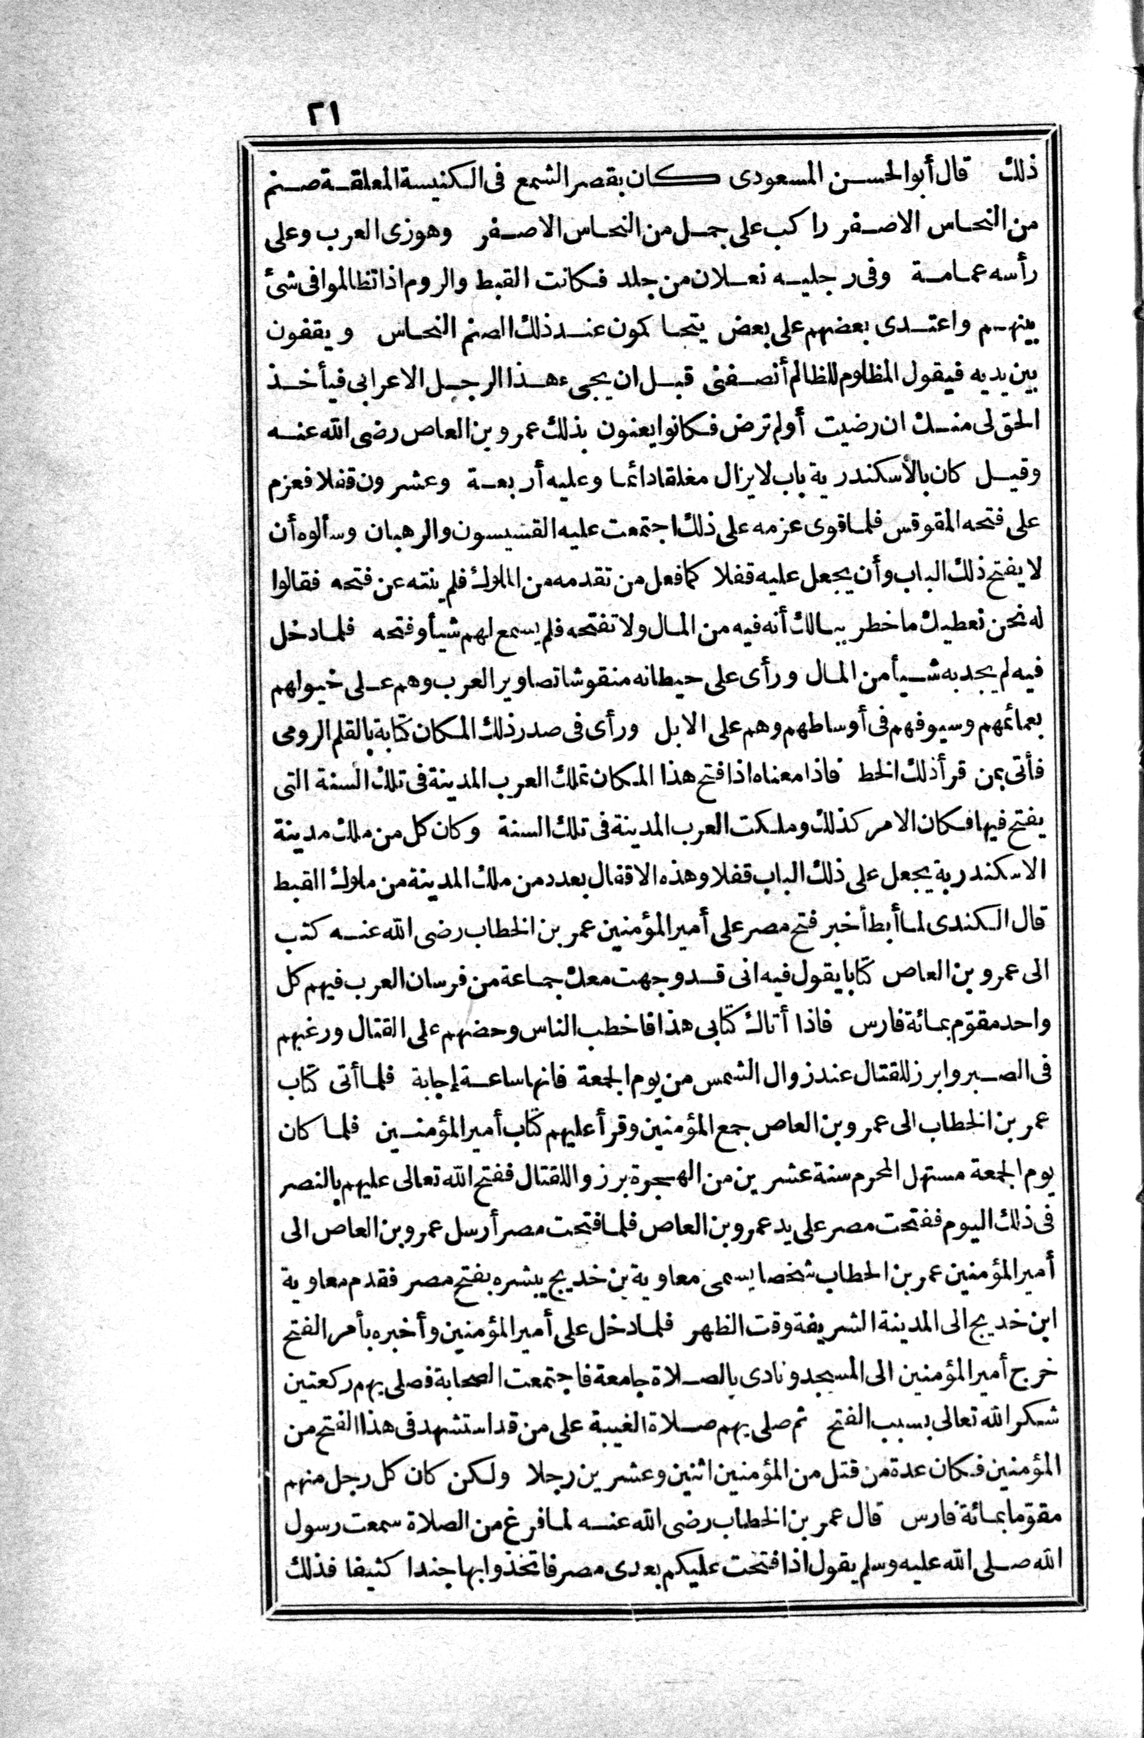 ٢١
ذلك قال أبو الحسن المسعودى كان بقصر الشمع فى الكنيسة المعلقة صنم
من النحاس الاصفر راكب على جمل من النحاس الاصفر وهو زى العرب وعلى
رأسه عمامة وفى رجليه نعلان من جلد فكانت القبط والروم اذا تظالموا فى شئ
بينهم واعتدى بعضهم على بعض يتحاكمون عند ذلك الصنم النحاس ويقفون
بين يديه فيقول المظلوم للظالم أنصفنى قبل ان يجىء هذا الرجل الاعرابى فيأخذ
الحق لى منك ان رضيت أو لم ترض فكانوا يعنون بذلك عمرو بن العاص رضى الله عنه
وقيل كان بالأسكندرية باب لا يزال مغلقا دائما وعليه أربعة وعشرون قفلا فعزم
على فتحه المقوقس فلما قوى عزمه على ذلك اجتمعت عليه القسيسون والرهبان وسألوه أن
لا يفتح ذلك الباب وأن يجعل عليه قفلا كما فعل من تقدمه من الملوك فلم ينته عن فتحه فقالوا
له نحن نعطيك ما خطر ببالك أنه فيه من المال ولا تفتحه فلم يسمع لهم شيأ وفتحه فلما دخل
فيه لم يجد به شيأ من المال ورأى على حيطانه منقوشا تصاوير العرب وهم على خيولهم
بعمائمهم وسيوفهم فى أوساطهم وهم على الابل ورأى فى صدر ذلك المكان كتابة بالقلم الرومى
فأتى بمن قرأ ذلك الخط فاذا معناه اذا فتح هذا المكان تملك العرب المدينة فى تلك السنة التى
يفتح فيها فكان الامر كذلك وملكت العرب المدينة فى تلك السنة وكان كل من ملك مدينة
الاسكندرية يجعل على ذلك الباب قفلا وهذه الاقفال بعدد من ملك المدينة من ملوك القبط
قال الكندى لما أبطأ خبر فتح مصر على أمير المؤمنين عمر بن الخطاب رضى الله عنه كتب
الى عمرو بن العاص كتابا يقول فيه انى قد وجهت معك جماعة من فرسان العرب فيهم كل
واحد مقوّم بمائة فارس فاذا أتاك كتابى هذا فاخطب الناس وحضهم على القتال ورغبهم
فى الصبر وابرز للقتال عند زوال الشمس من يوم الجمعة فانها ساعة إجابة فلما أتى كتاب
عمر بن الخطاب الى عمرو بن العاص جمع المؤمنين وقرأ عليهم كتاب أمير المؤمنين فلما كان
يوم الجمعة مستهل المحرم سنة عشرين من الهجرة برزوا للقتال ففتح الله تعالى عليهم بالنصر
فى ذلك اليوم ففتحت مصر على يد عمرو بن العاص فلما فتحت مصر أرسل عمرو بن العاص الى
أمير المؤمنين عمر بن الخطاب شخصا يسمى معاوية بن خديج يبشره بفتح مصر فقدم معاوية
ابن خديج الى المدينة الشريفة وقت الظهر فلما دخل على أمير المؤمنين وأخبره بأمر الفتح
خرج أمير المؤمنين الى المسجد ونادى بالصلاة جامعة فاجتمعت الصحابة فصلى بهم ركعتين
شكر الله تعالى بسبب الفتح ثم صلى بهم صلاة الغيبة على من قد استشهد فى هذا الفتح من
المؤمنين فكان عدة من قتل من المؤمنين اثنين وعشرين رجلا ولكن كان كل رجل منهم
مقوّما بمائة فارس قال عمر بن الخطاب رضى الله عنه لما فرغ من الصلاة سمعت رسول
الله صلى الله عليه وسلم يقول اذا فتحت عليكم بعدى مصر فاتخذوا بها جندا كثيفا فذلك